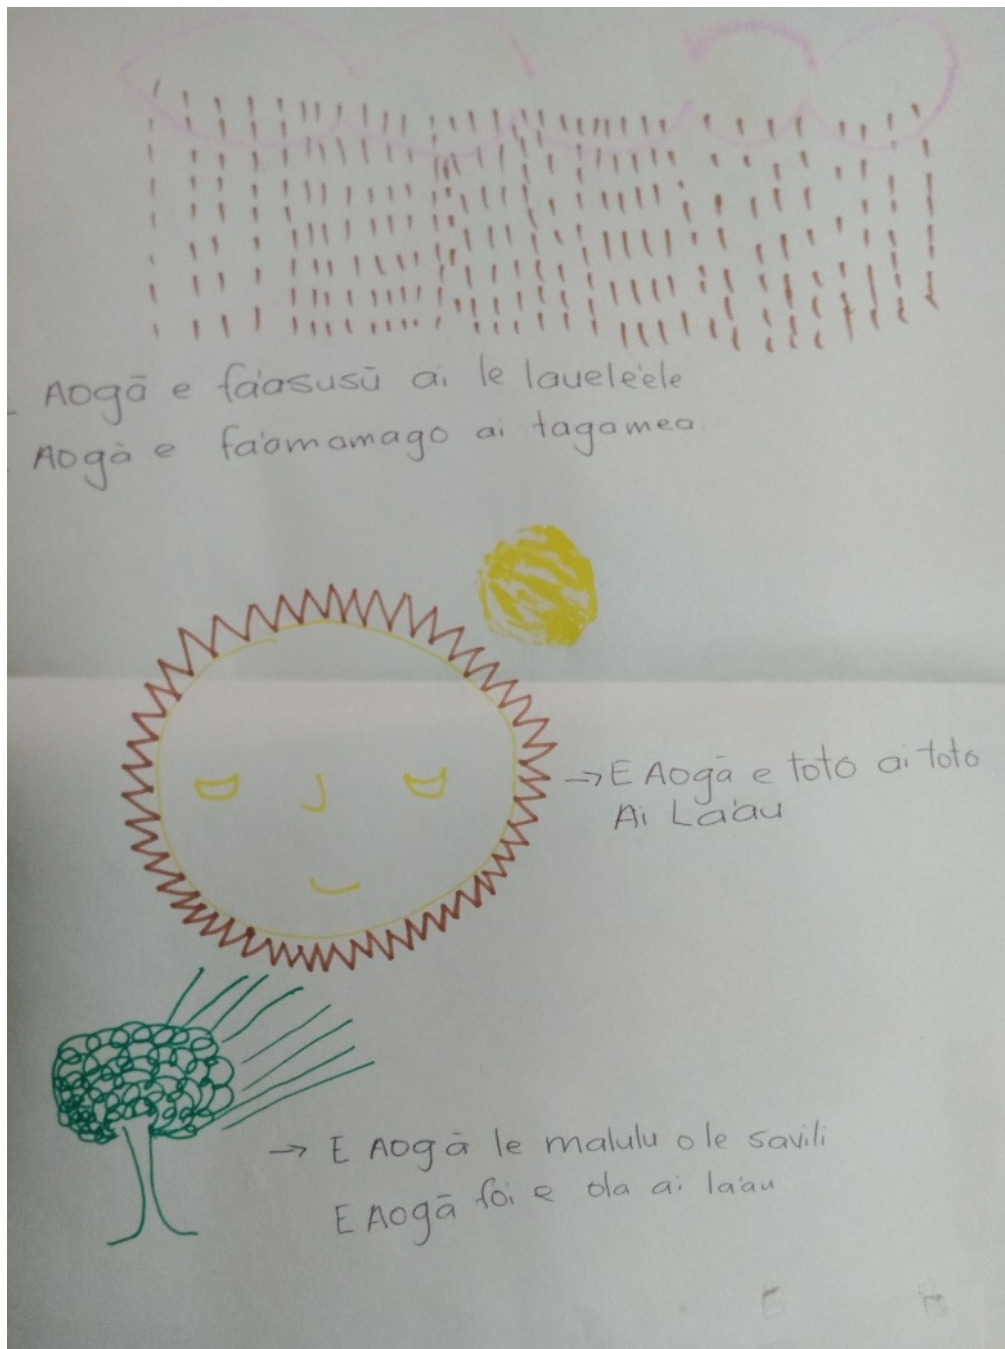 - Aogā e fa'asusū ai le laueleʻele
- Aogā e fa'amamago ai tagamea.
→ E Aogā e toto ai toto
Ai La'au
→ E Aogā le malulu o le savili
E Aogā foi e ola ai la'au